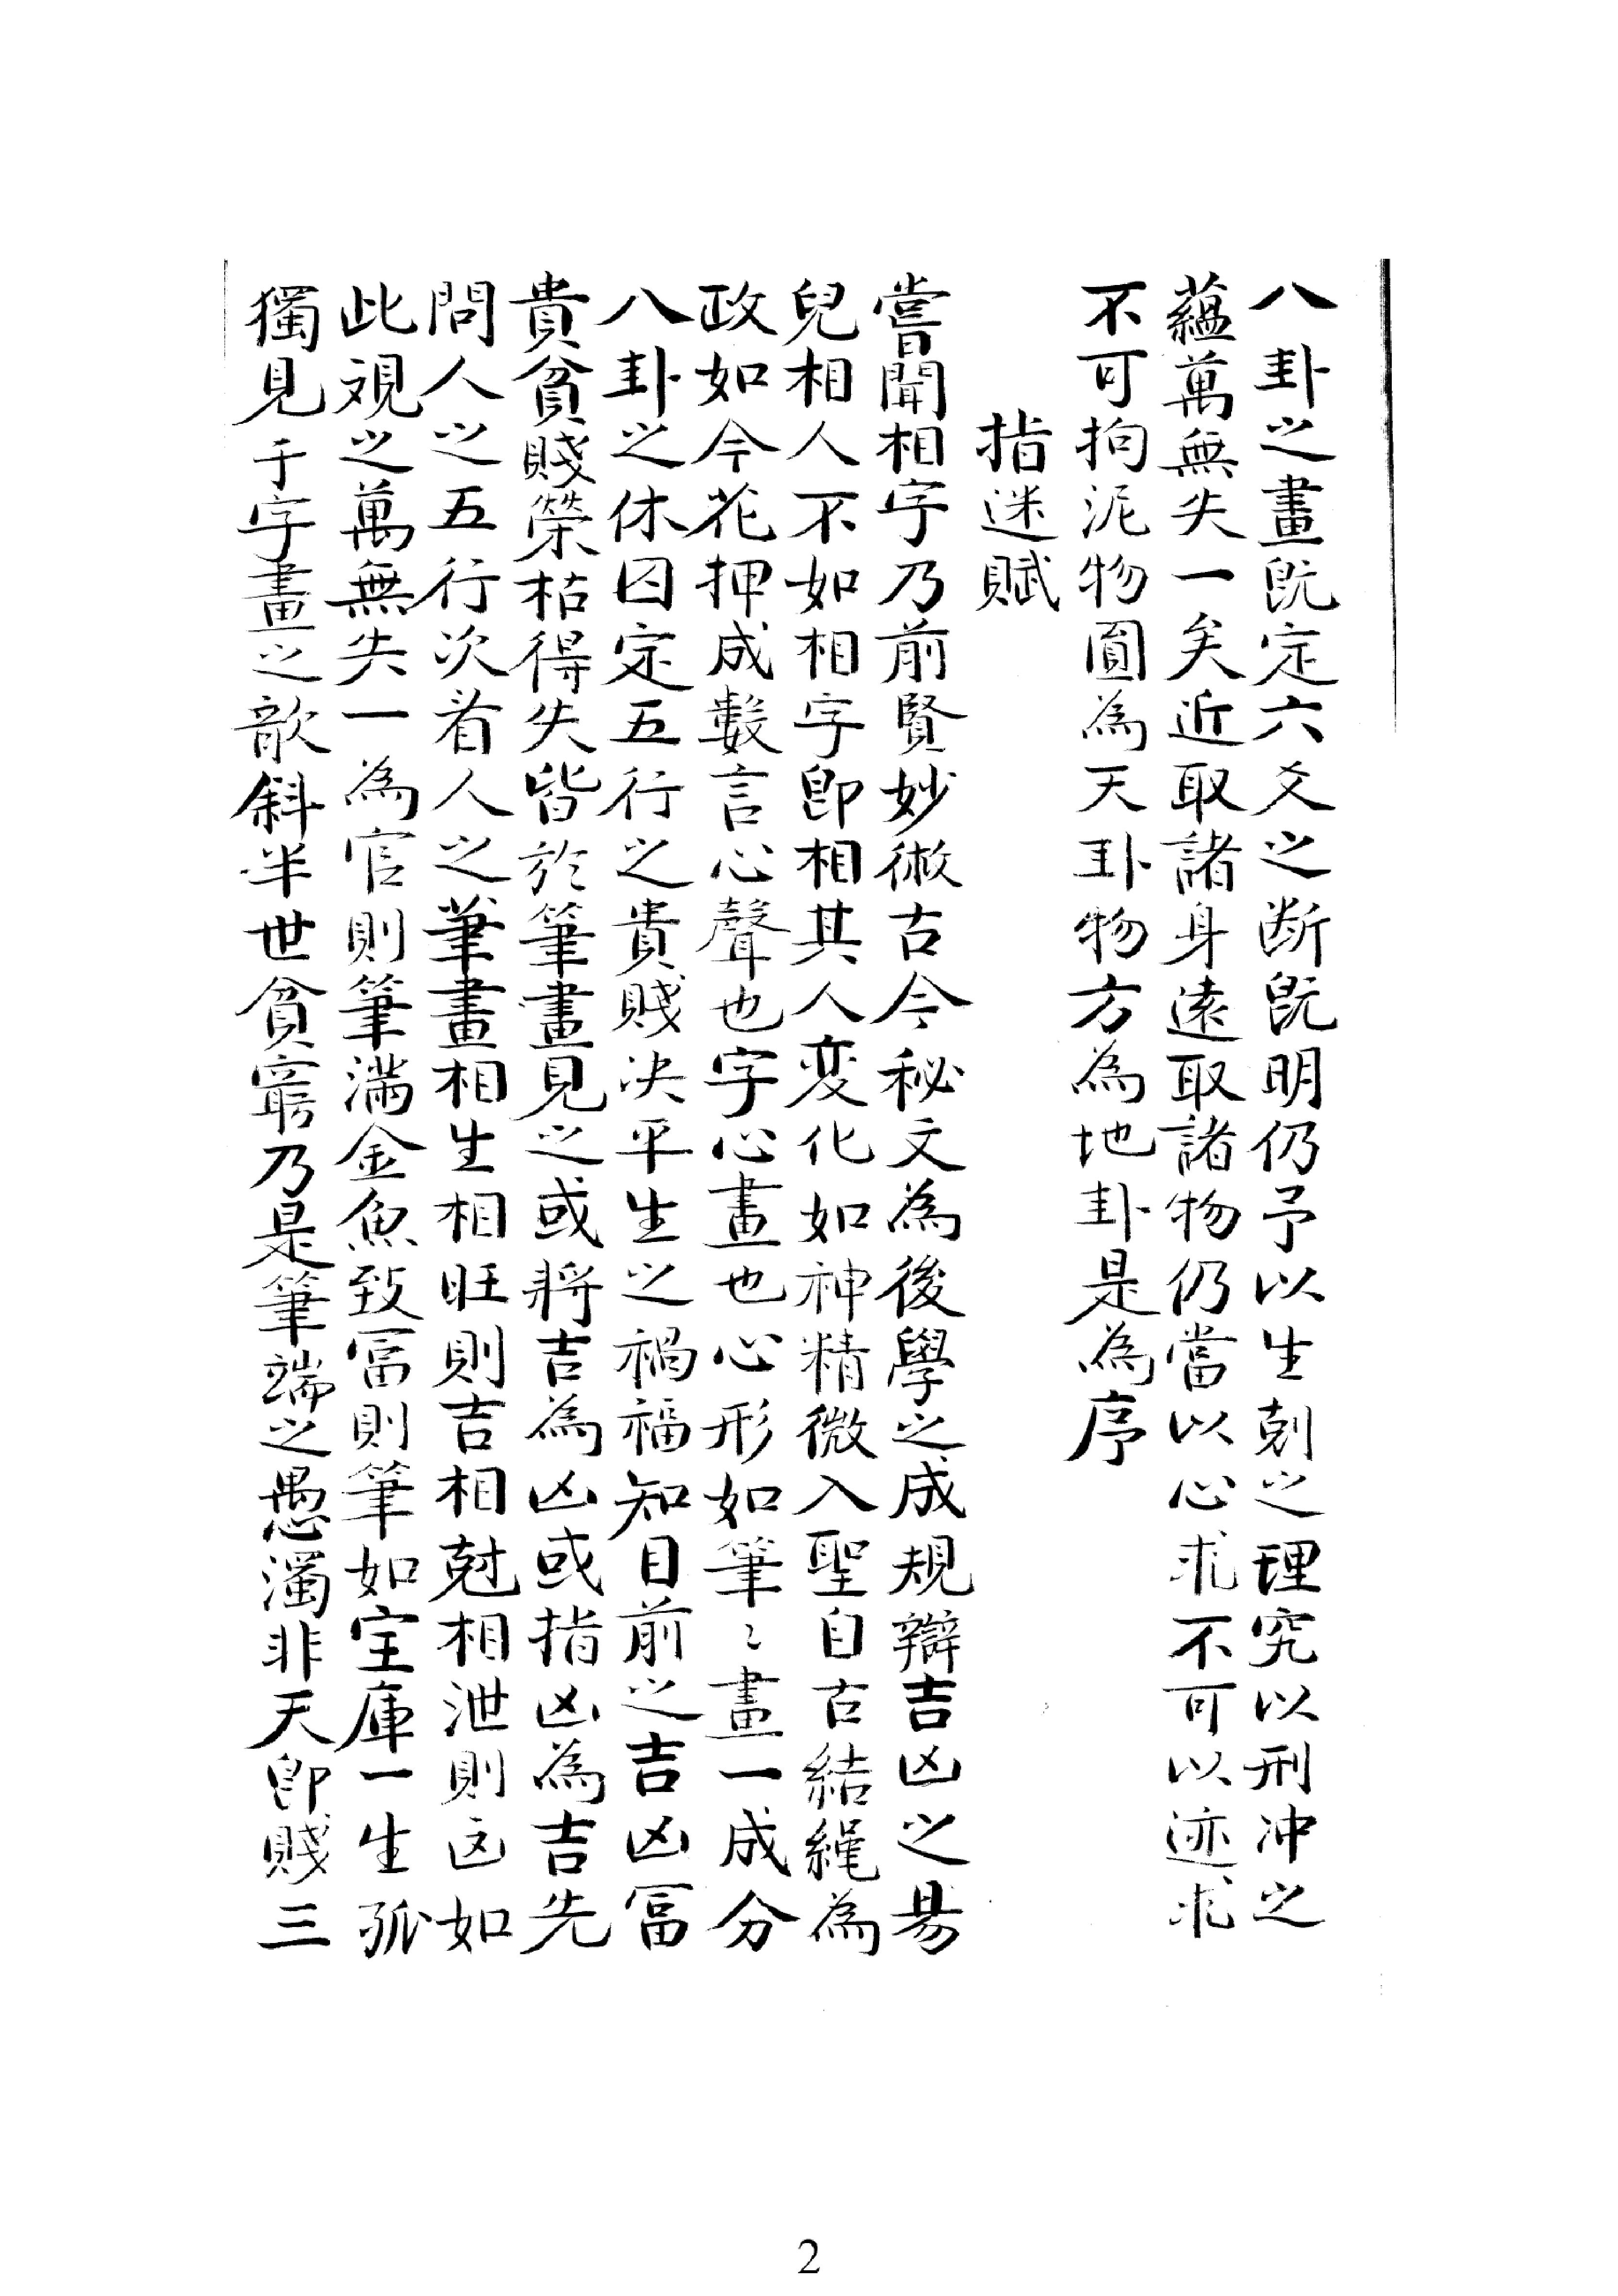 八卦之畫旣定六爻之断旣明仍予以生剋之理究以刑冲之
蘊萬無失一矣近取諸身遠取諸物仍當以心求不可以迹求
不可拘泥物圓為天卦物方為地卦是為序
指迷賦
嘗聞相字乃前賢妙微古今秘文為後學之成規辯吉凶之易
兒相人不如相字即相其人变化如神精微入聖自古結繩為
政如今花押成數言心聲也字心畫也心形如筆〻畫一成分
八卦之休囚定五行之貴賤决平生之禍福知目前之吉凶冨
貴貧賤榮枯得失皆於筆畫見之或將吉為凶或指凶為吉先
問人之五行次看人之筆畫相生相旺則吉相尅相泄則凶如
此觀之萬無失一為官則筆滿金魚致冨則筆如宝庫一生孤
獨見于字畫之歆斜半世貧窮乃是筆端之愚濁非天即賤三
2